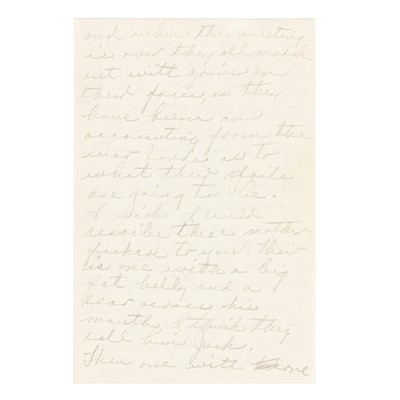 and when the meeting
is over they all march
out with grins on
their faces, as they
have been an
accounting from the
war lords as to
what their spoils
are going to be.
I wish I could
describe these mother
fuckers to you. Their
is one with a big
fat belly and a
scar across his
mouth, I think they
call him Jack.
Then one with one